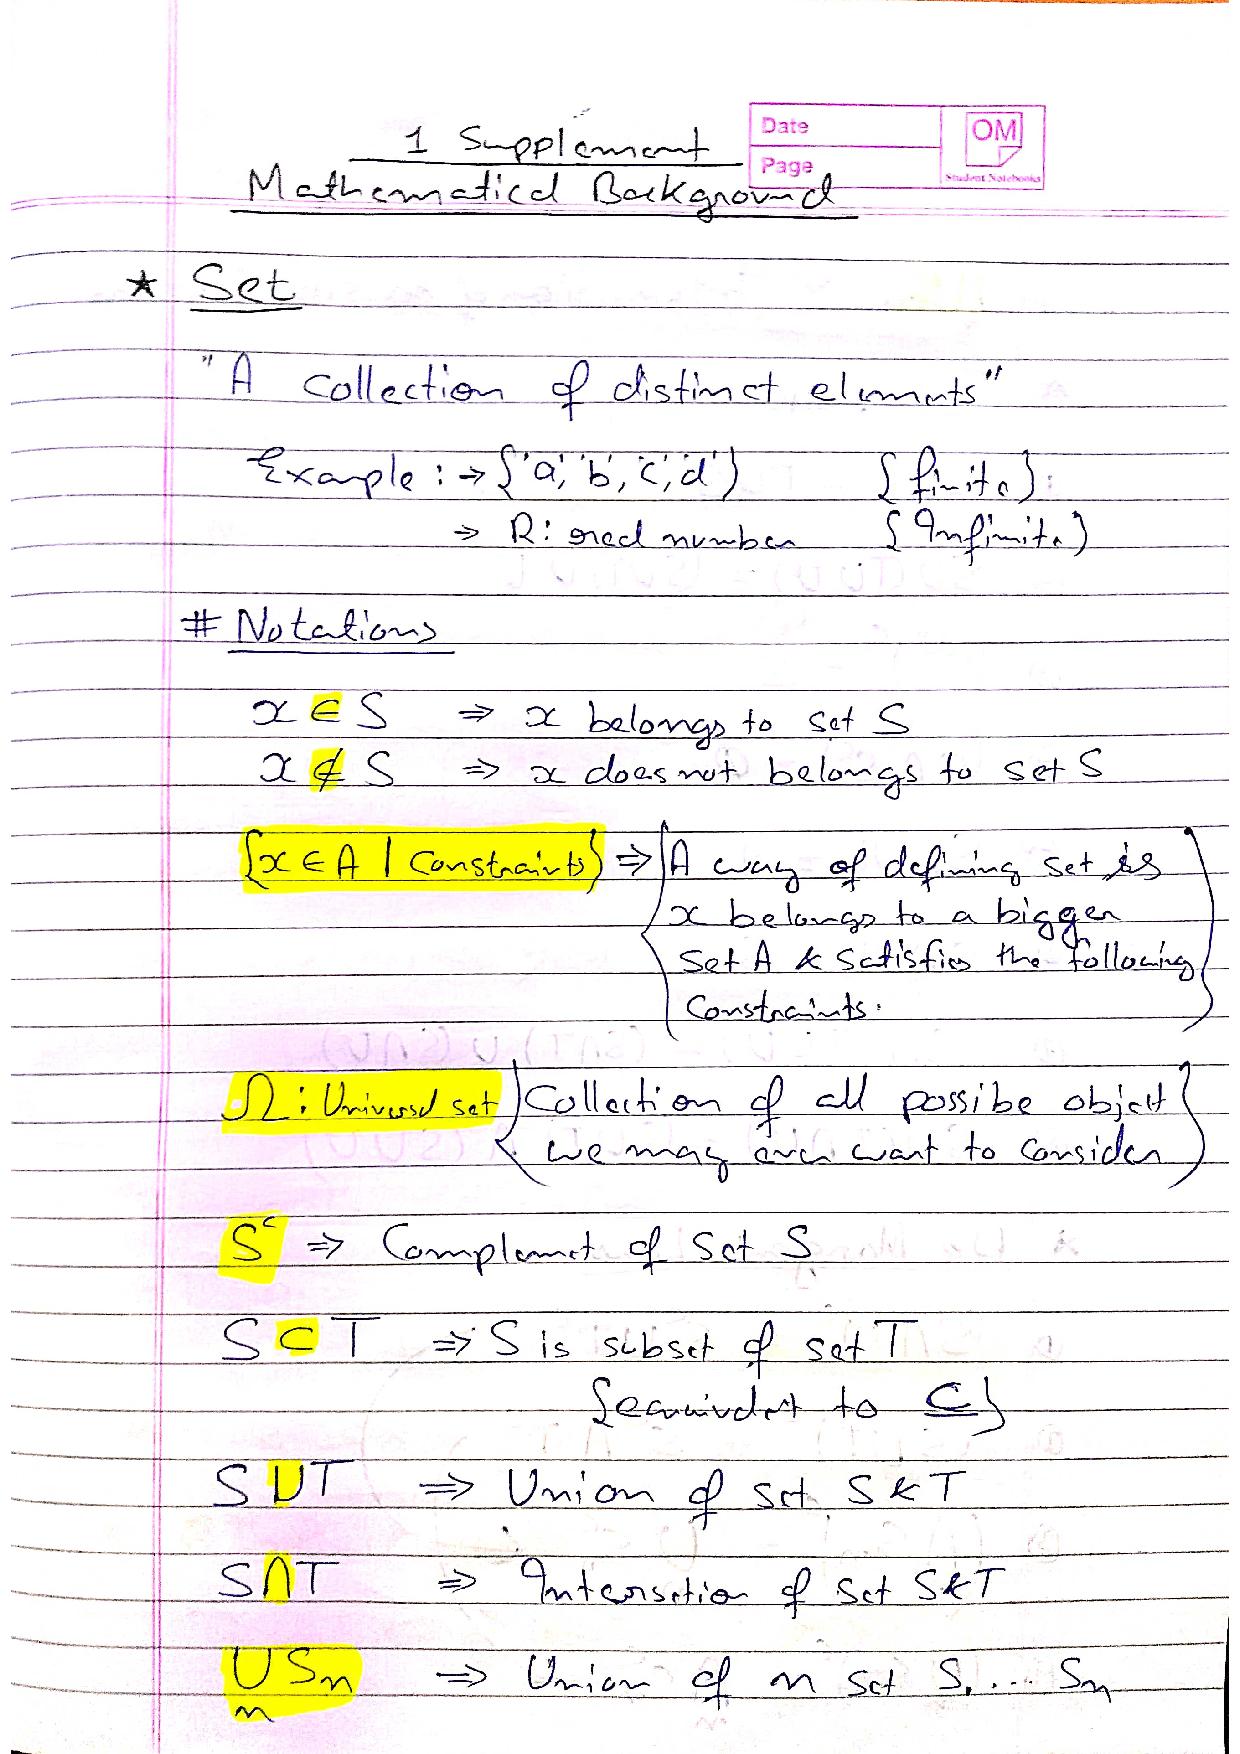 1 Supplement
Date
OM
Page
Student Notebooks
Mathematical Background
★ Set
"A collection of distinct elements"
Example : → {'a', 'b', 'c', 'd'} {finite}
⇒ R: real number {Infinite}
# Notations
x ∈ S ⇒ x belongs to set S
x ∉ S ⇒ x does not belongs to set S
{x ∈ A | Constraints} ⇒ {A way of defining set is
x belongs to a bigger
set A & satisfies the following
Constraints.}
Ω : Universal set {Collection of all possibe object
we may ever want to consider}
Sᶜ ⇒ Complemet of set S
S ⊂ T ⇒ S is subset of set T
{equivalent to ⊆}
S ∪ T ⇒ Union of set S & T
S ∩ T ⇒ Intersetion of set S & T
∪ Sn ⇒ Union of n set S₁ ... Sn
n